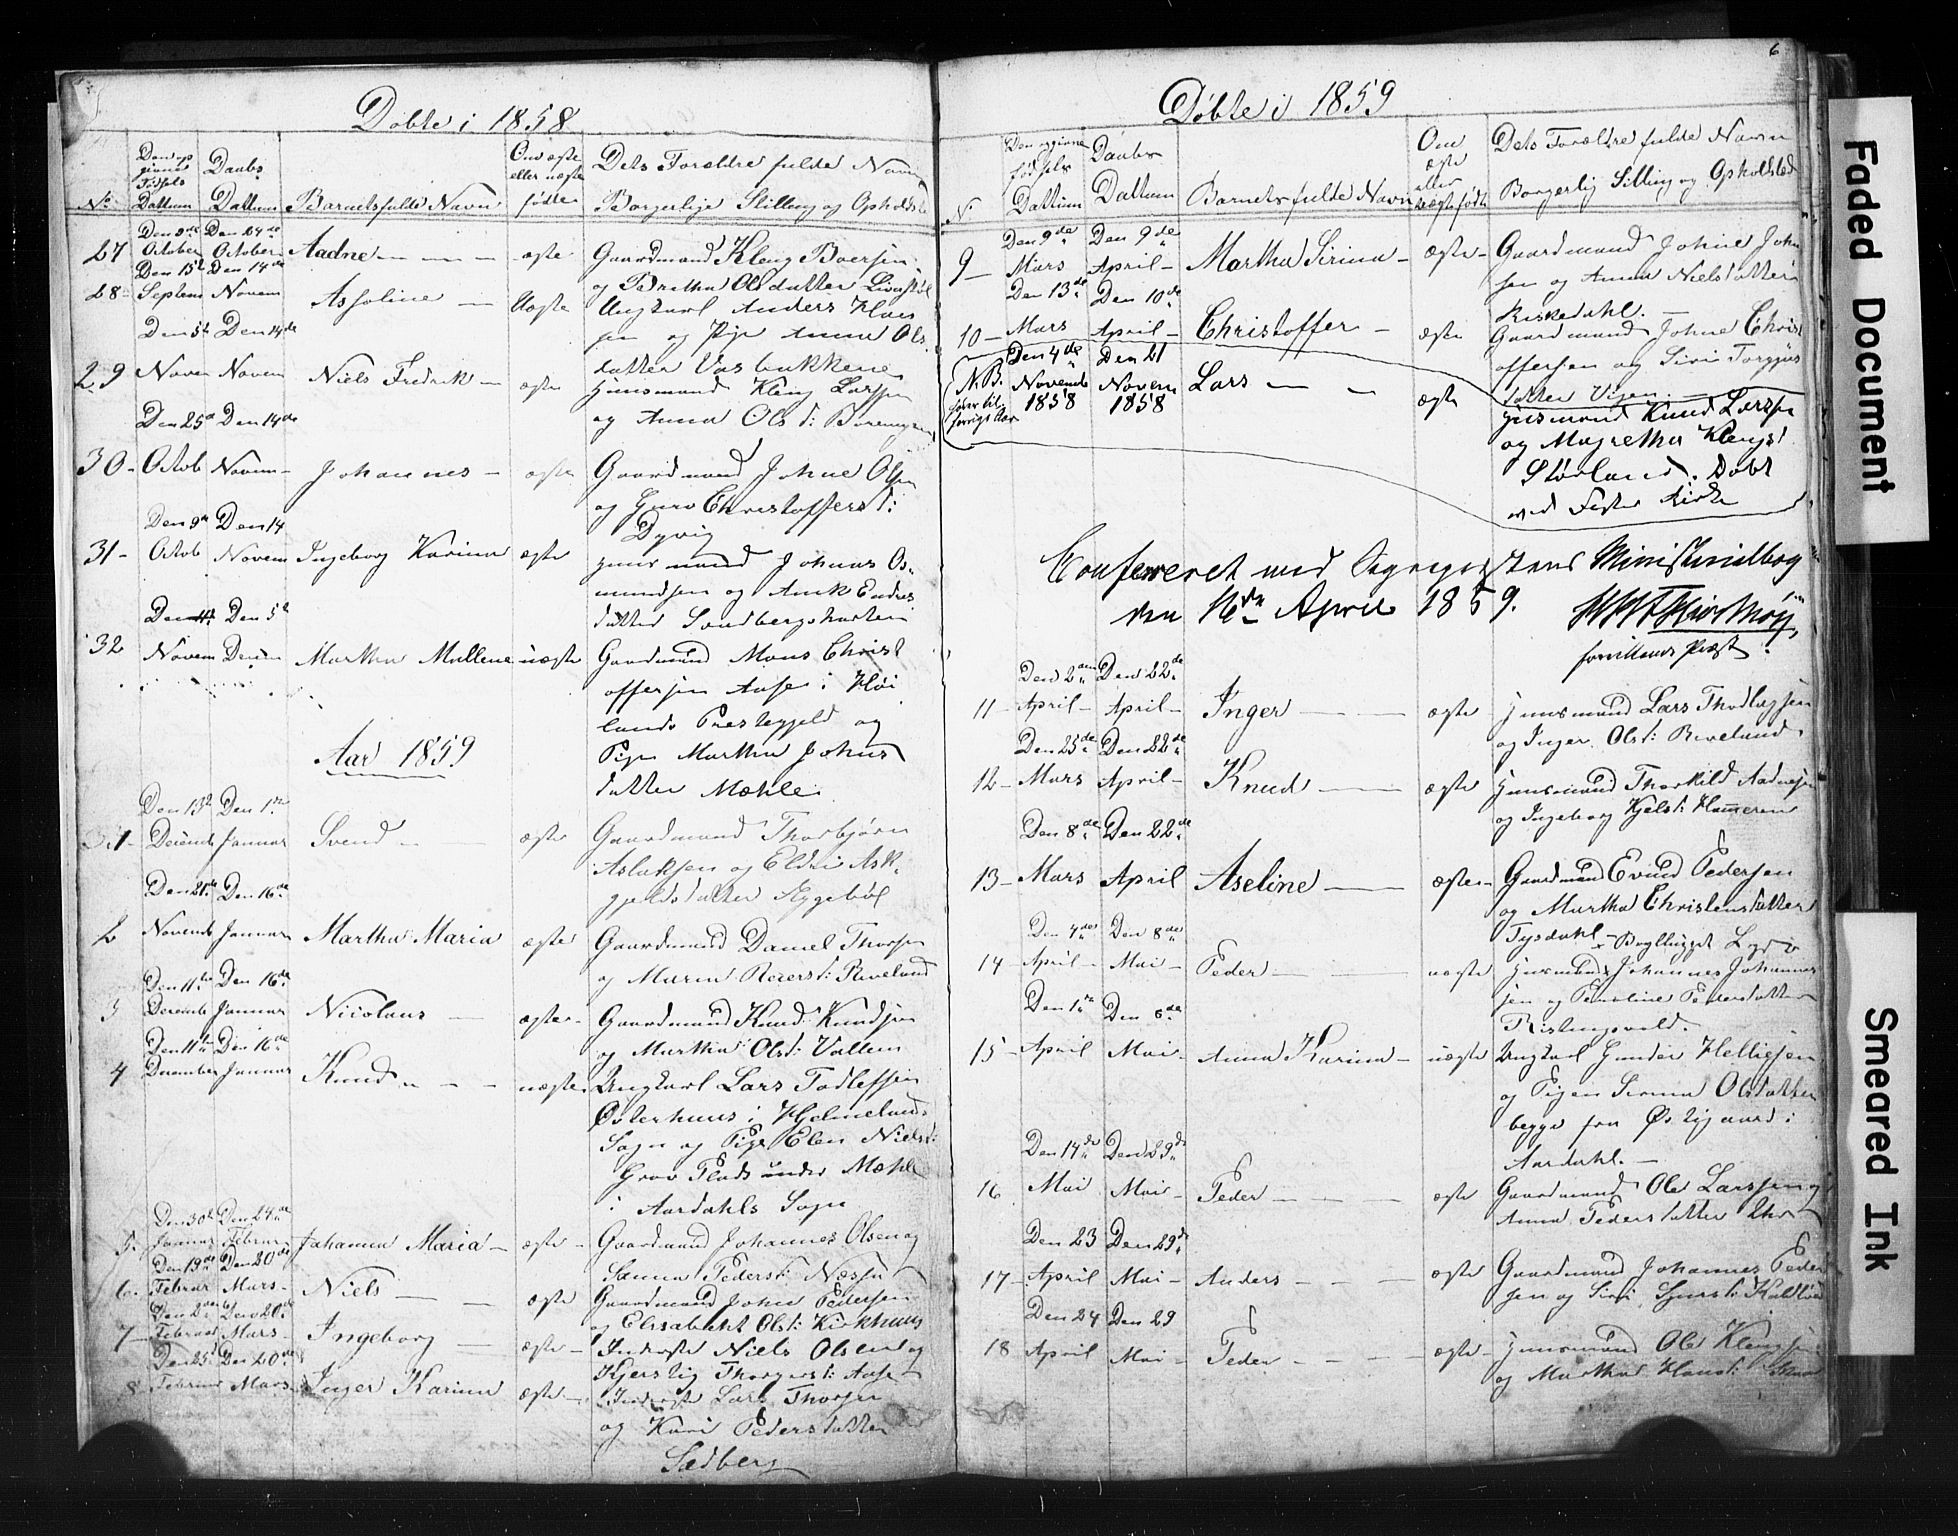 Døbte i 1858
No
Den op
givne
Fødsels
Dattum
Daabs
Dattum
Barnets fulde Navn
Om ægte
eller uægte
fødte
Dets Forældre fulde Navn
Borgerlige Stilling og Opholdst
27
Den 9de October
Den 24de October
Aadne
ægte
Gaardmand Kleng Boersen
og Bertha Olsdatter
28
Den 15de Septem
Den 14de Novem
Assoline
Uægte
Ungkarl Anders
sen og Pige Anna Ols
datter Vasbakkene
29
Den 5te Novem
Den 14de Novem
Niels Fredrik
ægte
Huusmand Kleng Larssen
og Anna Olsd:
30
Den 25de Octob
Den 14de Novem
Johannes
ægte
Gaardmand Johne Olsen
og Guro Christoffersd:
Dyvig
31
Den 9de Octob
Den 14 Novem
Ingeborg Karina
ægte
Huusmand Johannes Os
mundsen og Ane Endres
datter Sandbergshaven
32
Novem
Den 5te Decem
Martha Mallene
uægte
Gaardmand Mons Christ
offersen Aase i Høi
lands Prestegjeld og
Pige Martha Johns
datter Mæhle
Aar 1859
1
Den 13de Decemb
Den 1ste Januar
Svend
ægte
Gaardmand Thorbjørn
Aslaksen og Eldri Ask
gjeldsdatter Hyggebøl
2
Den 21de Novemb
Den 16de Januar
Martha Maria
ægte
Gaardmand Daniel Thorsen
og Maren Reiersd: Riveland
3
Den 11te Decemb
Den 16de Januar
Nicolaus
ægte
Gaardmand Knud Knudsen
og Martha Olsd: Vallem
4
Den 11te December
Den 16de Januar
Knud
uægte
Ungkarl Lars Tollefsen
Østerhuus i Hjelmelands
Sogn og Pige Elen Nielsd:
Grov Plads under Mæhle
i Aardahls Sogn
5
Den 30te Januar
Den 24de Februar
Johanna Maria
ægte
Gaardmand Johannes Olsen og
Sanna Pedersd: Næssa
6
Den 19de Februar
Den 20de Mars
Niels
ægte
Gaardmand John Pedersen
og Elisabeth Olsd: Kirkhuus
7
Den 2den Februar
Den 20de Mars
Ingeborg
ægte
Inderste Niels Olsen og
Kjerstig Thorgersd: Aase
8
Den 25d Februar
Den 20de Mars
Inger Karina
ægte
Inderste Lars Thorsen
og Kari Pedersdatter
Sedberg
6
Døbte i 1859
N
Den opgivne
fødsels
Dattum
Daabs
Dattum
Barnets fulde Navn
Om
ægte
eller
uægte født
Dets Forældre fulde Navn
Borgerlig Stilling og Opholdsted
9
Den 9de Mars
Den 9de April
Martha Sirina
ægte
Gaardmand Johne John
sen og Anna Nielsdatter
Riskedahl.
10
Den 13de Mars
Den 10de April
Christoffer
ægte
Gaardmand Johne Christ
offersen og Siri Torgjus
datter Vigen
N.B.
hører til
forrige Aar
Den 4de Novemb 1858
Den 21 Novem 1858
Lars
ægte
Huusmand Knud Larssen
og Magretha Klengsd
Størland. Døbt
ved Fister Kirke
Confereret med Sognepræstens Ministerialbog
den 16de April 1859.
forrettende Præst.
11
Den 2den April
Den 22de April
Inger
ægte
Huusmand Lars Thorlagsen
og Inger Olsd: Riveland
12
Den 25de Mars
Den 22de April
Knud
ægte
Huusmand Thorkild Aadnesen
og Ingeborg Kjelsd: Hameren
13
Den 8de Mars
Den 22de April
Aseline
ægte
Gaardmand Evind Pedersen
og Martha Christensdatter
Tysdahl
14
Den 4de April
Den 8de Mai
Peder
uægte
Huusmand Johannes Johannes
sen og Penoline Pedersdatter
15
Den 1ste April
Den 8de Mai
Anna Karina
uægte
Ungkarl Gunder Helliesen
og Pigen Serina Olsdatter
begge fra Østigaard i
Aardahl.
16
Den 14de Mai
Den 29de Mai
Peder
ægte
Gaardmand Ole Larssen og
Anna Pedersdatter
17
Den 23 April
Den 29de Mai
Anders
ægte
Gaardmand Johannes Peder
sen og Siri Sjursd:
18
Den 24 April
Den 29 Mai
Peder
ægte
Huusmand Ole Klengsen
og Martha Hansd:
Faded Document
Smeared Ink